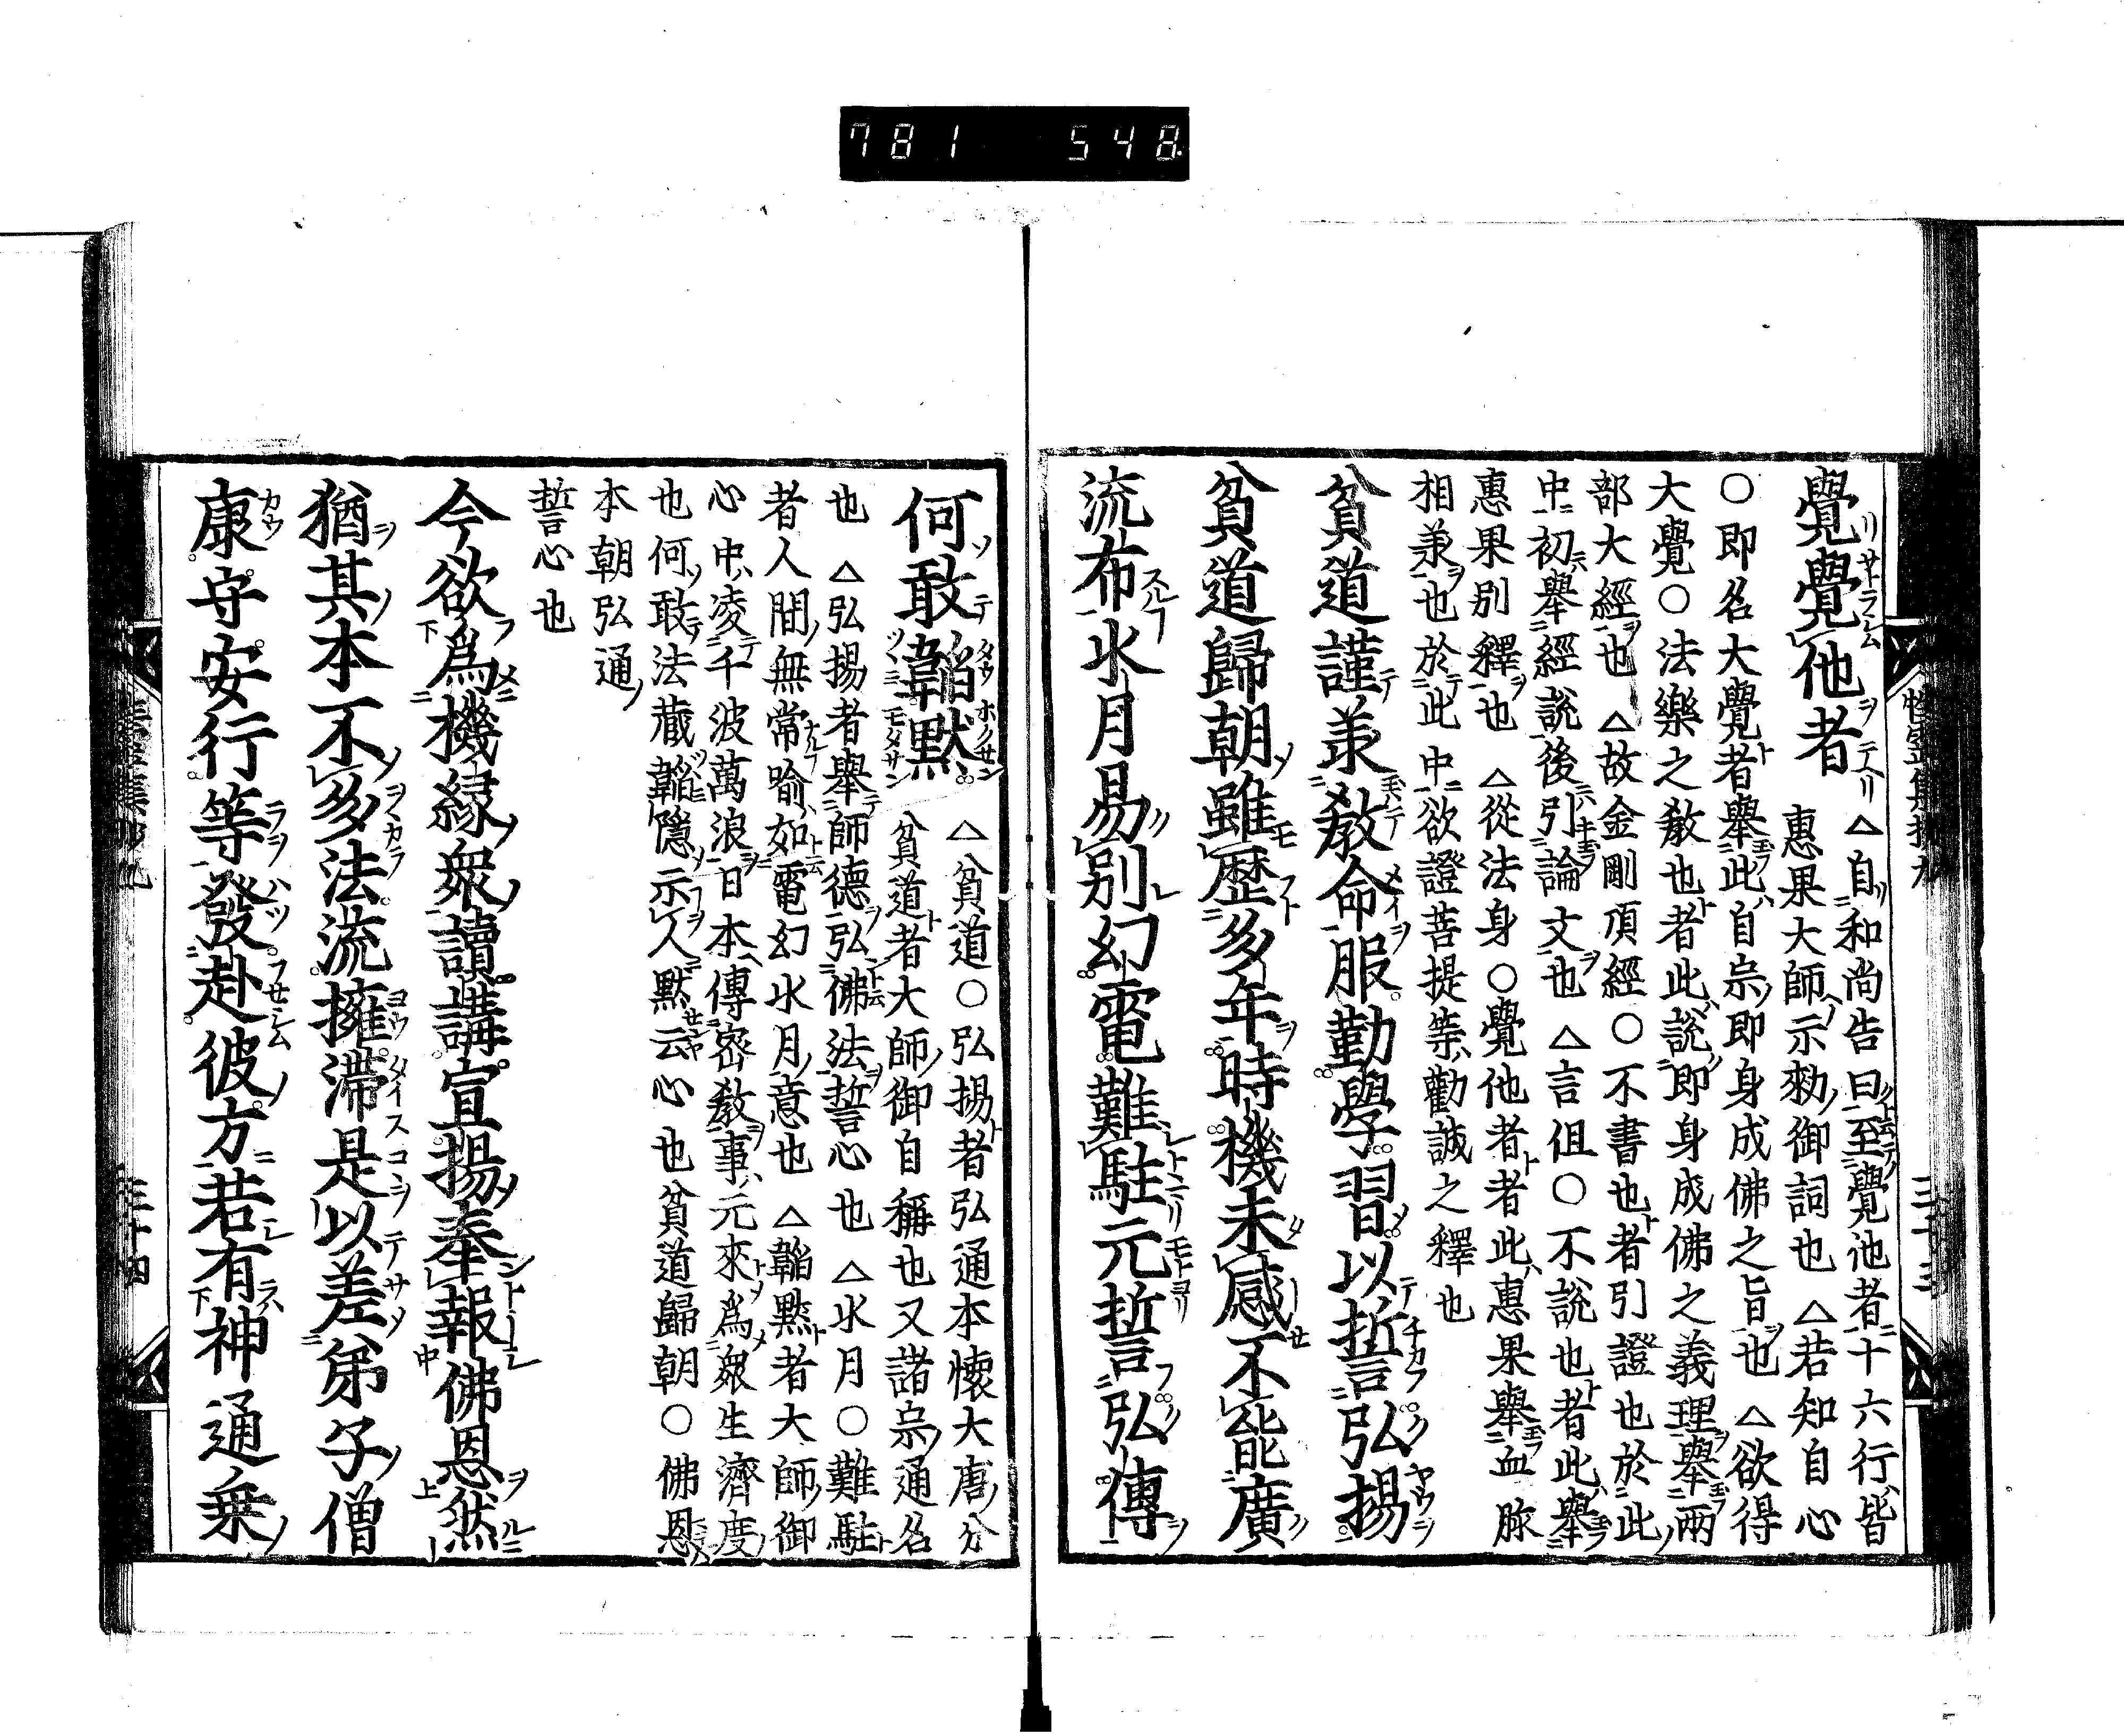 781 548
覺覺他者 △自和尚告曰至覺他者十六行皆
惠果大師示勑御詞也 △若知自心
○即名大覺者舉此自宗即身成佛之旨也 △欲得
大覺○法樂之教也者此說即身成佛之義理舉兩
部大經也 △故金剛頂經○不書也者引證也於此
中初舉經說後引論文也 △言但○不說也者此舉
惠果別釋也 △從法身○覺他者者此惠果舉血脉
相承也於此中欲證菩提等勸誡之釋也
貧道謹承教命服勤學習以誓弘揚
貧道歸朝雖歷多年時機未感不能廣
流布水月易別幻電難駐元誓弘傳
何敢韜默 △貧道○弘揚者弘通本懷大唐分
貧道者大師御自稱也又諸宗通名
也 △弘揚者舉師德弘佛法誓心也 △水月○難駐
者人間無常喻如電幻水月意也 △韜默者大師御
心中凌千波萬浪日本傳密教事元來爲衆生濟度
也何敢法藏韜隱示人默云心也貧道歸朝○佛恩
本朝弘通
誓心也
今欲爲機緣衆讀講宣揚奉報佛恩然
猶其本不多法流擁滯是以差弟子僧
康守安行等發赴彼方若有神通乗